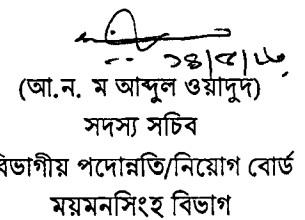 (আ.ন. ম আব্দুল ওয়াদুদ)
সদস্য সচিব
বিভাগীয় পদোন্নতি/নিয়োগ বোর্ড
ময়মনসিংহ বিভাগ